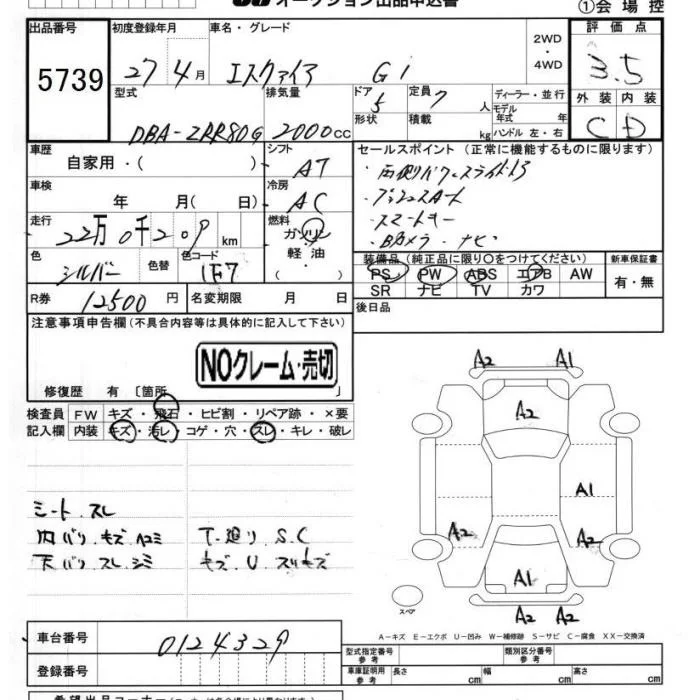 オークション出品申込書
①会場控
出品番号 初度登録年月 車名・グレード 評価点
5739 27年4月 エスクァイア Gi 2WD・4WD 3.5
型式 排気量 ドア形状 定員 人 ディーラー・並行 外装 内装
DBA-ZRR80G 2000cc 5 7 モデル年式 年 C D
積載 kg ハンドル 左・右
車歴 シフト セールスポイント (正常に機能するものに限ります)
自家用・( ) AT ・両側パワースライドドア
車検 冷房 ・プッシュスタート
年 月( 日) AC ・スマートキー
走行 燃料 ・Bカメラ ・ナビ
22万0千209km ガソリン
軽油
・( )
色 色替 色コード 装備品 (純正品に限り○をつけてください) 新車保証書
シルバー 1F7 PS PW ABS エアB AW 有・無
SR ナビ TV カワ
R券 12500円 名変期限 月 日 後日品
注意事項申告欄(不具合内容等は具体的に記入して下さい)
NOクレーム・売切
修復歴 有 〔箇所
検査員 FW キズ・飛石・ヒビ割・リペア跡・×要
記入欄 内装 キズ・汚レ・コゲ・穴・スレ・キレ・破レ
シート.スレ
内バリ.キズ.ヘコミ T.廻り.S.C
天バリ.スレ.シミ キズ.U.スリキズ
A2 A1
A2
A1
A2 A2
A1
A2 A2
スペア
A-キズ E-エクボ U-凹み W-補修跡 S-サビ C-腐食 XX-交換済
車台番号 0124329
登録番号
型式指定番号 参考 類別区分番号 参考
車庫証明用 参考 長さ cm 幅 cm 高さ cm